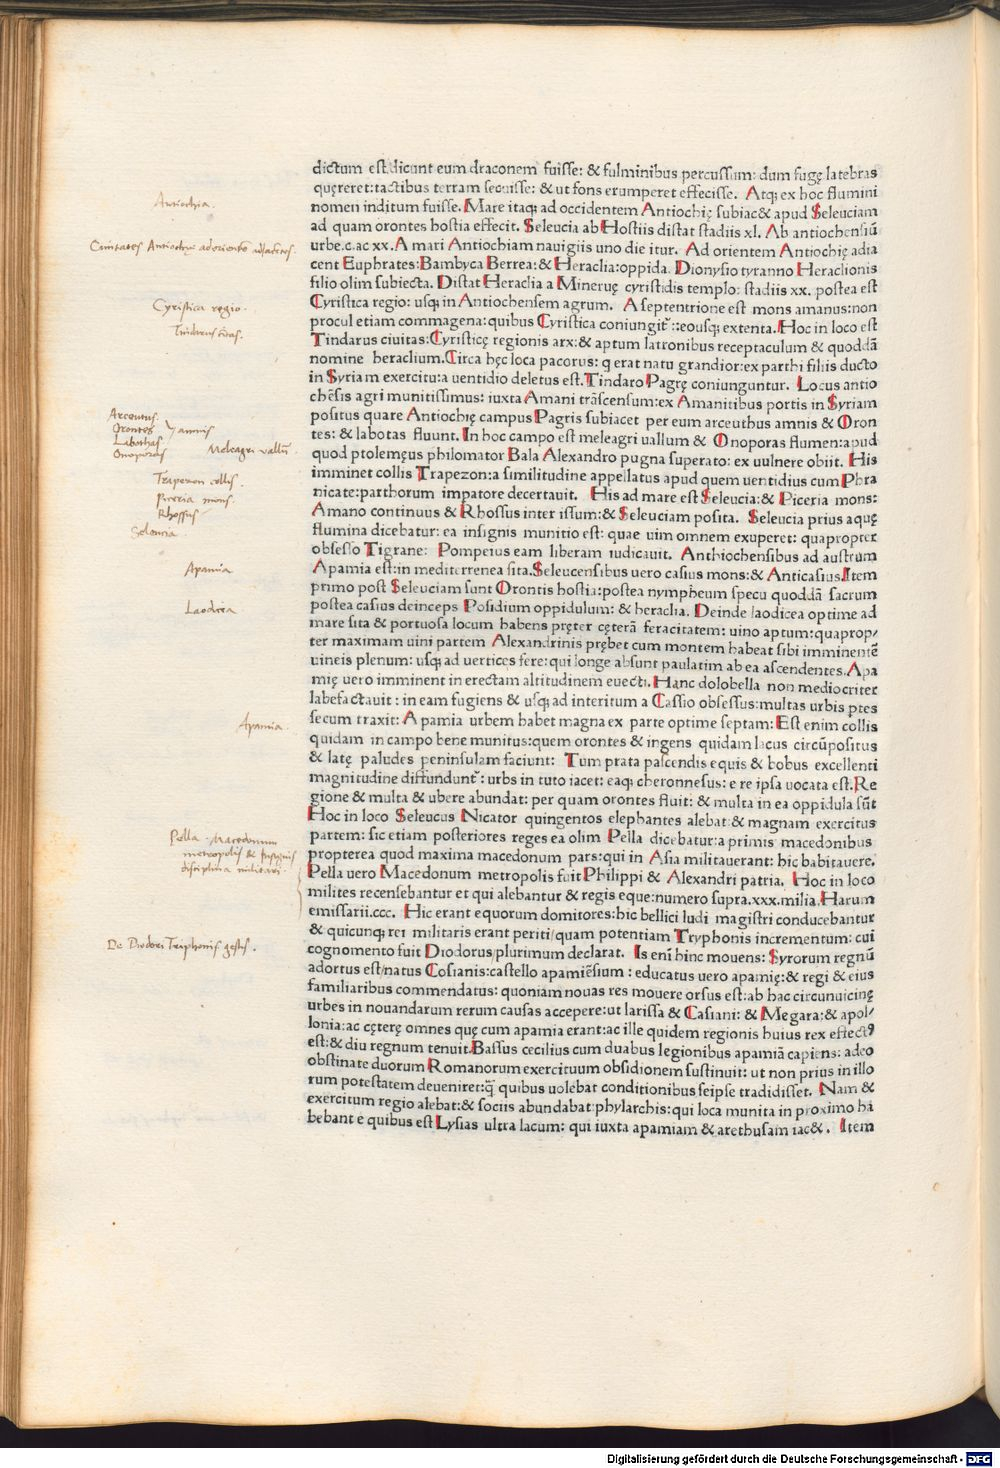 dictum est dicunt eum draconem fuisse: & fulminibus percussum: dum fugę latebras
quęreret: tactibus terram secuisse: & ut fons erumperet effecisse. Atq; ex hoc flumini
nomen inditum fuisse. Mare itaq; ad occidentem Antiochię subiac& apud Seleuciam
ad quam orontes hostia effecit. Seleucia ab Hostiis distat stadiis xl. Ab antiochensiū
urbe.c.ac xx. A mari Antiochiam nauigiis uno die itur. Ad orientem Antiochię adia
cent Euphrates: Bambyca Berrea: & Heraclia: oppida. Dionysio tyranno Heraclionis
filio olim subiecta. Distat Heraclia a Mineruę cyristidis templo: stadiis xx. postea est
Cyristica regio: usq; in Antiochensem agrum. A septentrione est mons amanus: non
procul etiam commagena: quibus Cyristica coniungit᷑: :eousq; extenta. Hoc in loco est
Tindarus ciuitas: Cyristicę regionis arx: & aptum latronibus receptaculum & quoddā
nomine heraclium. Circa hęc loca pacorus: q erat natu grandior: ex parthi filiis ducto
in Syriam exercitu: a uentidio deletus est. Tindaro Pagrę coniunguntur. Locus antio
chēsis agri munitissimus: iuxta Amani trāscensum: ex Amanitibus portis in Syriam
positus quare Antiochię campus Pagris subiacet per eum arceuthus amnis & Oron
tes: & labotas fluunt. In hoc campo est meleagri uallum & Onoporas flumen: apud
quod ptolemęus philomator Bala Alexandro pugna superato: ex uulnere obiit. His
imminet collis Trapezon: a similitudine appellatus apud quem uentidius cum Phra
nicate: parthorum impatore decertauit. His ad mare est Seleucia: & Piceria mons:
Amano continuus & Rhossus inter issum: & Seleuciam posita. Seleucia prius aquę
flumina dicebatur: ea insignis munitio est: quae uim omnem exuperet: quapropter
obsesso Tigrane: Pompeius eam liberam iudicauit. Anthiochensibus ad austrum
Apamia est: in mediterrenea sita. Seleucensibus uero casius mons: & Anticasius. Item
primo post Seleuciam sunt Orontis hostia: postea nympheum specu quoddā sacrum
postea casius deinceps Posidium oppidulum: & heraclia. Deinde laodicea optime ad
mare sita & portuosa locum habens pręter cęterā feracitatem: uino aptum: quaprop/
ter maximam uini partem Alexandrinis prębet cum montem habeat sibi imminentē
uineis plenum: usq; ad uertices fere: qui longe absunt paulatim ab ea ascendentes. Apa
mię uero imminent in erectam altitudinem euecti. Hanc dolobella non mediocriter
labefactauit: in eam fugiens & usq; ad interitum a Cassio obsessus: multas urbis ptes
secum traxit: Apamia urbem habet magna ex parte optime septam: Est enim collis
quidam in campo bene munitus: quem orontes & ingens quidam lacus circūpositus
& latę paludes peninsulam faciunt: Tum prata pascendis equis & bobus excellenti
magnitudine diffundunt᷑: urbs in tuto iacet: eaq; cheronnesus: e re ipsa uocata est. Re
gione & multa & ubere abundat: per quam orontes fluit: & multa in ea oppidula sūt
Hoc in loco Seleucus Nicator quingentos elephantes alebat: & magnam exercitus
partem: sic etiam posteriores reges ea olim Pella dicebatur: a primis macedonibus
propterea quod maxima macedonum pars: qui in Asia militauerant: hic habitauere.
Pella uero Macedonum metropolis fuit Philippi & Alexandri patria. Hoc in loco
milites recensebantur et qui alebantur & regis eque: numero supra.xxx.milia. Harum
emissarii.ccc. Hic erant equorum domitores: hic bellici ludi magistri conducebantur
& quicunq; rei militaris erant periti/quam potentiam Tryphonis incrementum: cui
cognomento fuit Diodorus/plurimum declarat. Is enī hinc mouens: Syrorum regnū
adortus est/natus Cosianis: castello apamiēsium: educatus uero apamię: & regi & eius
familiaribus commendatus: quoniam nouas res mouere orsus est: ab hac circunuicinę
urbes in nouandarum rerum causas accepere: ut larissa & Casiani: & Megara: & apol/
lonia: ac cęterę omnes quę cum apamia erant: ac ille quidem regionis huius rex effectꝰ
est: & diu regnum tenuit. Bassus cecilius cum duabus legionibus apamiā capiens: adeo
obstinate duorum Romanorum exercituum obsidionem sustinuit: ut non prius in illo
rum potestatem deueniret: q̄ quibus uolebat conditionibus seipse tradidisset. Nam &
exercitum regio alebat: & sociis abundabat: phylarchis: qui loca munita in proximo ha
bebant e quibus est Lysias ultra lacum: qui iuxta apamiam & arethusam iac&. Item
Antiochia.
Ciuitates Antiochię ad orientem adiacentes.
Cyristica regio.
Tindarus ciuitas.
Arceutus.
Orontes
Labothas
Onoporas
amnis
Meleagri vallū.
Trapezon collis.
Piceria mons.
Rhossus
Seleucia.
Apamia.
Laodicea
Apamia.
Pella. Macedonum
metropolis & insignis
disciplina militari.
De Diodori Triphonis gestis.
Digitalisierung gefördert durch die Deutsche Forschungsgemeinschaft - DFG